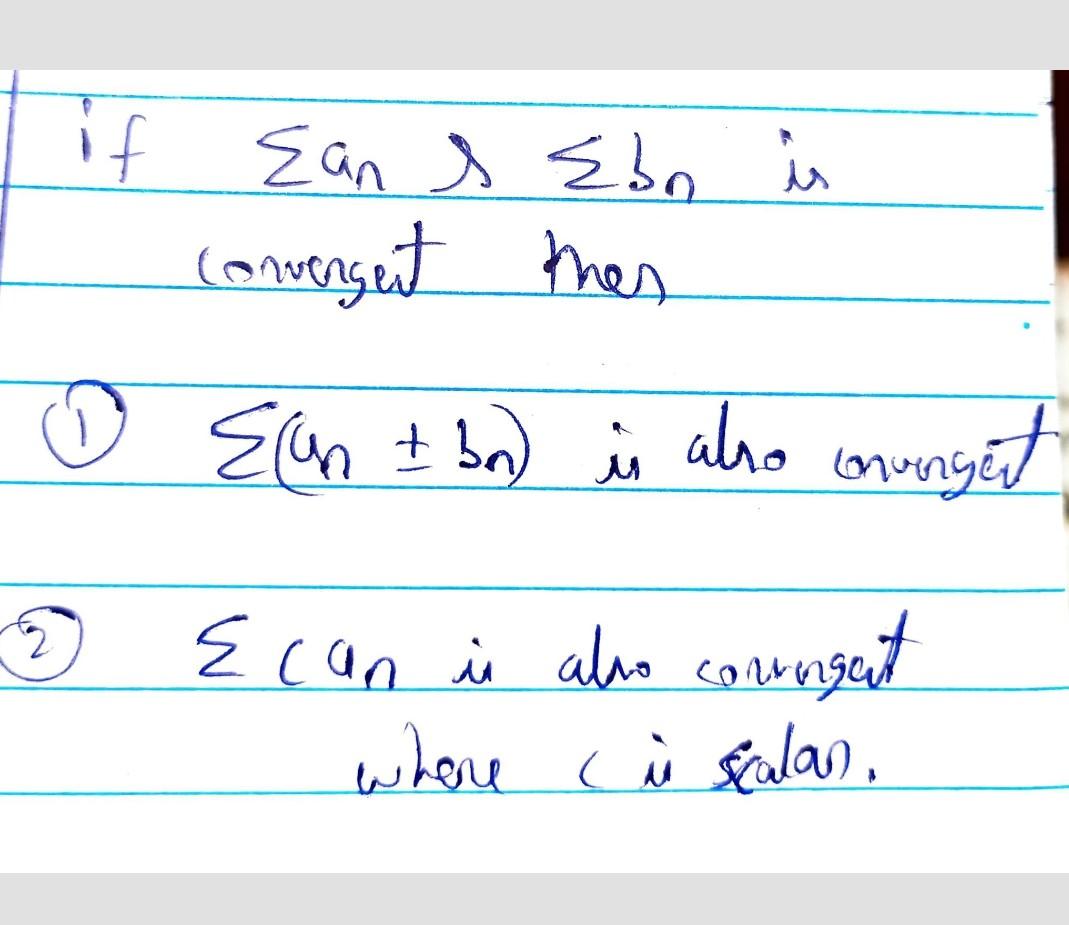 if Σan & Σbn is
convergent then
① Σ(an ± bn) is also convergent
② Σ can is also convergent
where c is scalar.